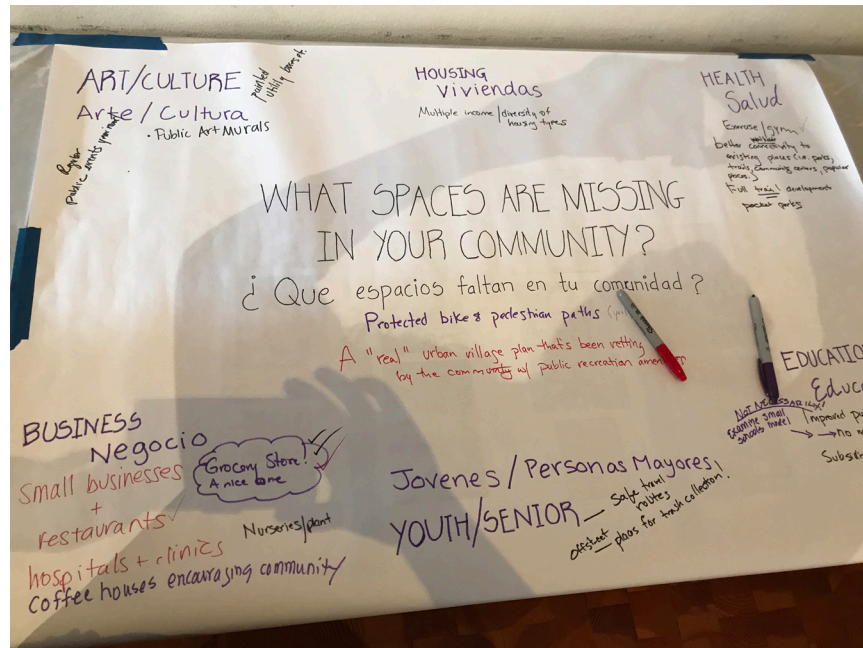 ART/CULTURE
Arte / Cultura
• Public Art Murals
painted
utility boxes
Regular
Public events
HOUSING
Viviendas
Multiple income/diversity of
housing types
HEALTH
Salud
Exercise/gym
better connectivity to
existing places (i.e. parks,
trails, community centers, popular
places.)
Full trail development
pocket parks
WHAT SPACES ARE MISSING
IN YOUR COMMUNITY?
¿ Que espacios faltan en tu comunidad?
Protected bike & pedestrian paths
A "real" urban village plan that's been vetting
by the community w/ public recreation
EDUCATIO
Educ
NOT NECESSARILY!
Examine small
schools model
Improved
→ no
BUSINESS
Negocio
Grocery Store!
A nice one
small businesses
+
restaurants
Nurseries/plant
hospitals + clinics
Coffee houses encouraging community
Jovenes / Personas Mayores
YOUTH/SENIOR — Safe travel
routes
offstreet plans for trash collection!